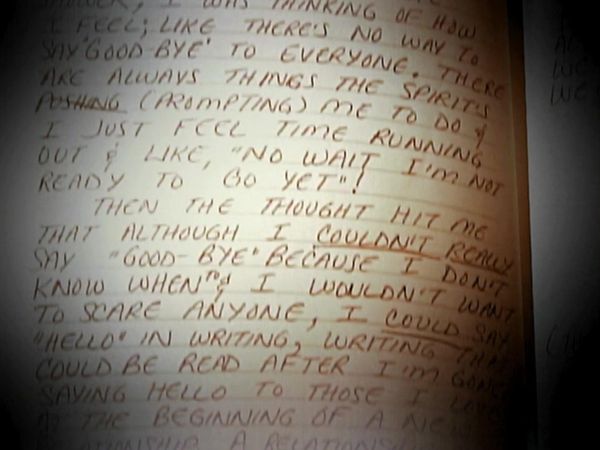 SHOWER, I WAS THINKING OF HOW
I FEEL; LIKE THERE'S NO WAY TO
SAY "GOOD-BYE" TO EVERYONE. THERE
ARE ALWAYS THINGS THE SPIRIT'S
PUSHING (PROMPTING) ME TO DO &
I JUST FEEL TIME RUNNING
OUT & LIKE, "NO WAIT I'M NOT
READY TO GO YET"!
THEN THE THOUGHT HIT ME
THAT ALTHOUGH I COULDN'T REALLY
SAY "GOOD-BYE" BECAUSE I DON'T
KNOW WHEN & I WOULDN'T WANT
TO SCARE ANYONE, I COULD SAY
"HELLO" IN WRITING, WRITING THAT
COULD BE READ AFTER I'M GONE
SAYING HELLO TO THOSE I LOVE
AT THE BEGINNING OF A NEW
RELATIONSHIP A RELATIONSHIP